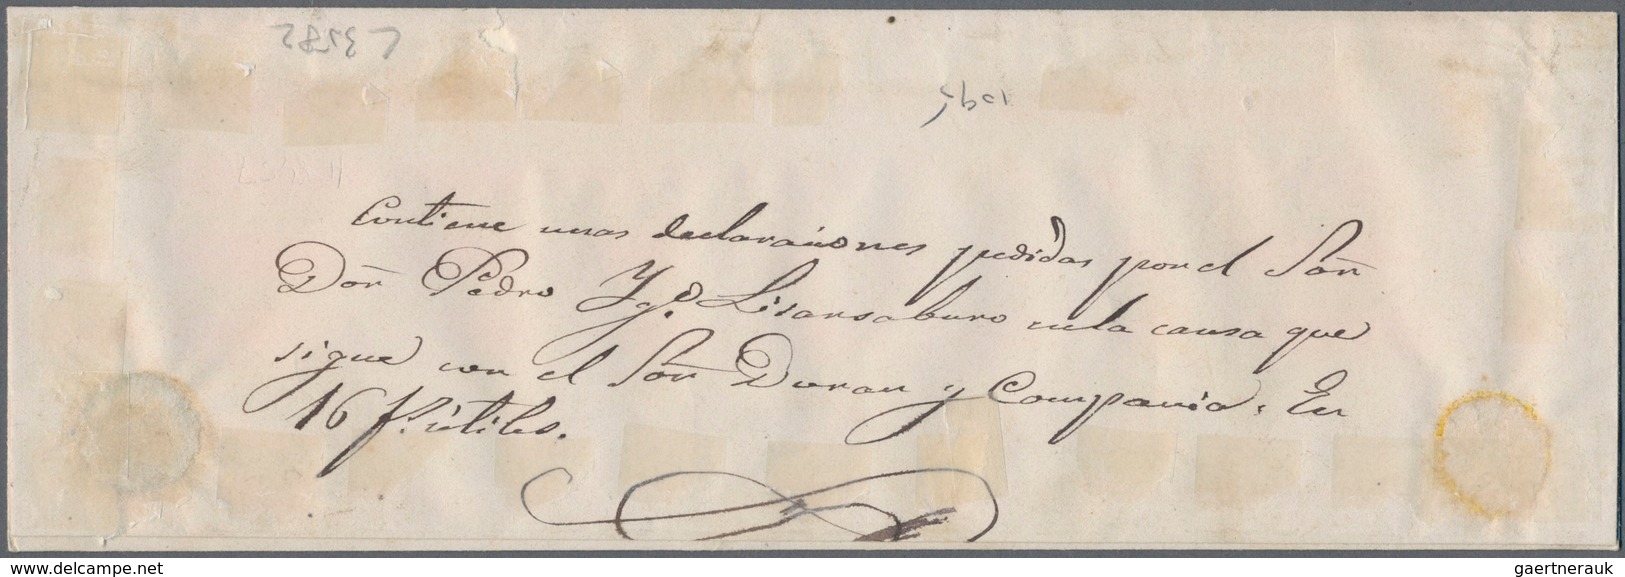 C 3572
Contiene unas declaraciones pedidas por el Sōr
Don̄ Pedro Ygo. Lizarsaburo en la causa que
sigue con el Sōr Duran y Compania. En
16 f.s útiles.
delcampe.net
gaertnerauk